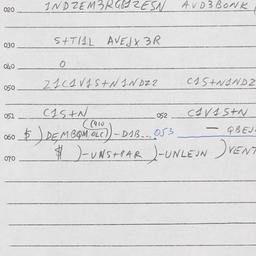 020 1NDZEM3RGB1ZESN AVD3BONK
030 S+TI1L AVEJX 3R
040 0
050 Z1C1V1S+N1NDZZ C1S+N1NDZ
051 C1S+N 052 C1V1S+N
060 $ )DEM -D1B... 053 — QBEJ
070 $ )-UNS+PAR )-UNLEJN )VENT